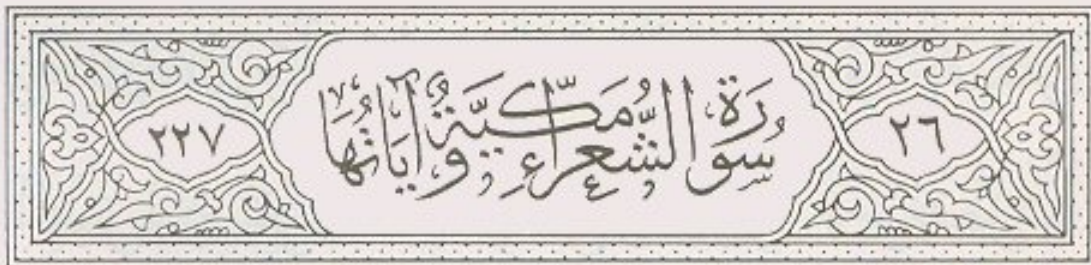 ٢٦ سُورَةُ الشُّعَرَاءِ مَكِّيَّةٌ وَآيَاتُهَا ٢٢٧